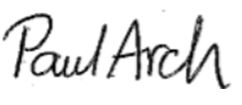 Paul Arch